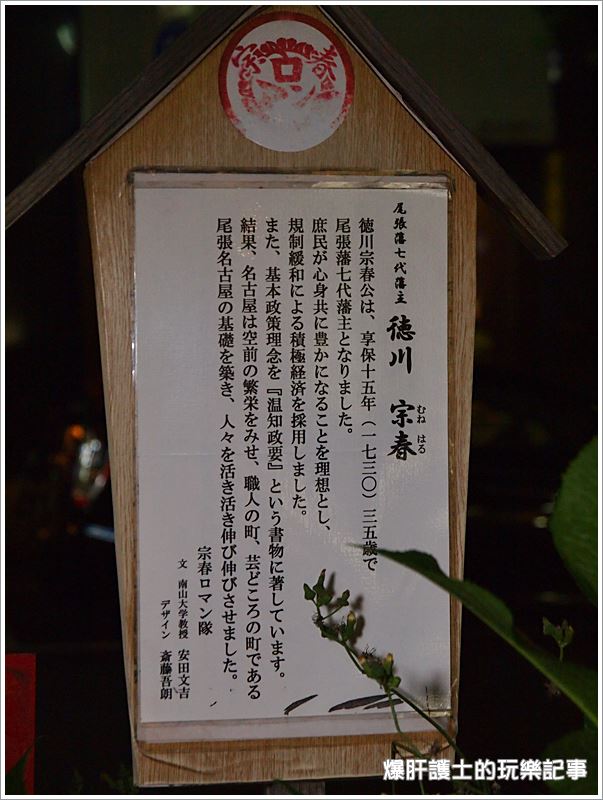 宗春ロマン
尾張藩七代藩主 徳川 宗春
むね はる
徳川宗春公は、享保十五年(一七三〇)三五歳で
尾張藩七代藩主となりました。
庶民が心身共に豊かになることを理想とし、
規制緩和による積極経済を採用しました。
また、基本政策理念を『温知政要』という書物に著しています。
結果、名古屋は空前の繁栄をみせ、職人の町、芸どころの町である
尾張名古屋の基礎を築き、人々を活き活き伸び伸びさせました。
宗春ロマン隊
文 南山大学教授 安田文吉
デザイン 斎藤吾朗
爆肝護士的玩樂記事